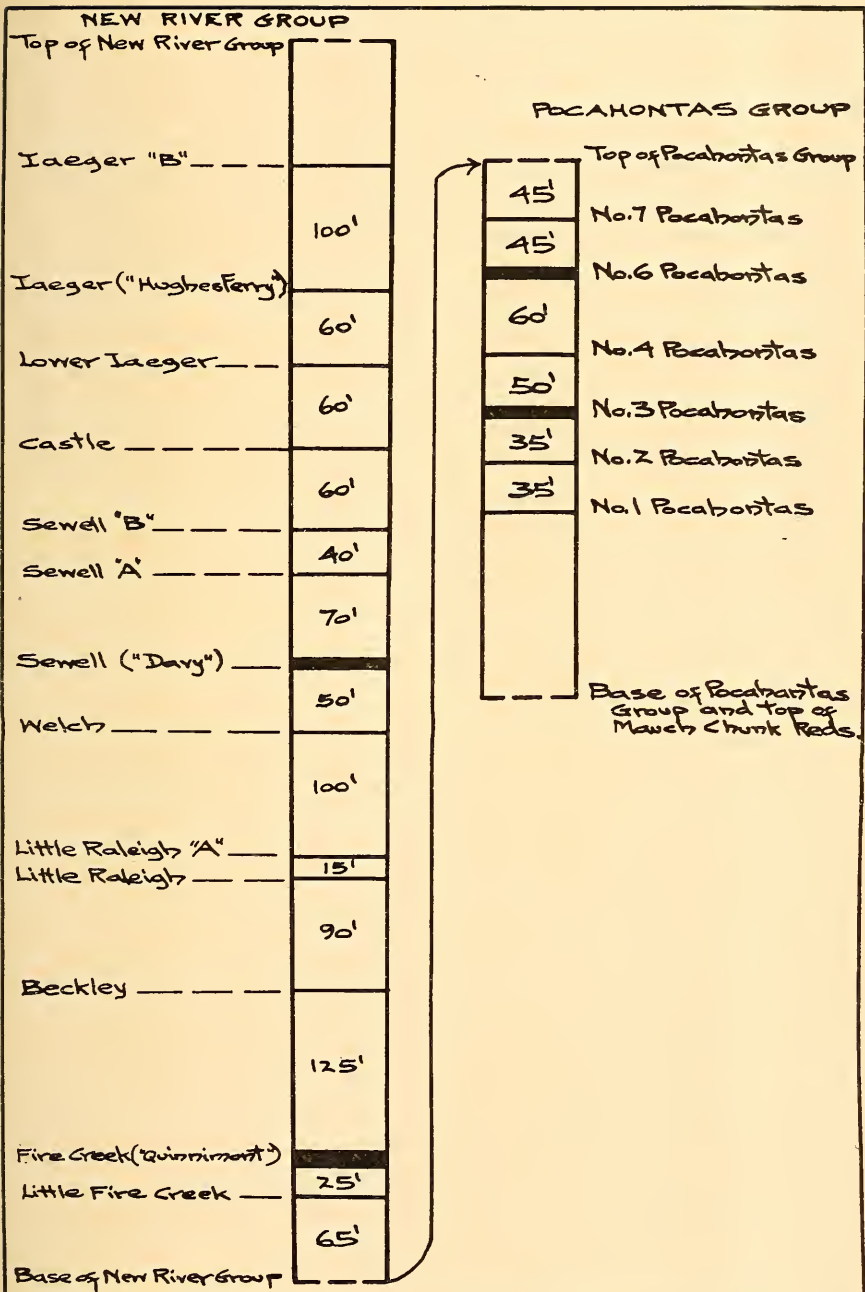 NEW RIVER GROUP
Top of New River Group
Iaeger "B"
100'
Iaeger ("Hughes Ferry")
60'
Lower Iaeger
60'
Castle
60'
Sewell "B"
40'
Sewell "A"
70'
Sewell ("Davy")
50'
Welch
100'
Little Raleigh "A"
15'
Little Raleigh
90'
Beckley
125'
Fire Creek ("Quinnimont")
25'
Little Fire Creek
65'
Base of New River Group
POCAHONTAS GROUP
Top of Pocahontas Group
45'
No.7 Pocahontas
45'
No.6 Pocahontas
60'
No.4 Pocahontas
50'
No.3 Pocahontas
35'
No.2 Pocahontas
35'
No.1 Pocahontas
Base of Pocahontas
Group and top of
Mauch Chunk Reds.